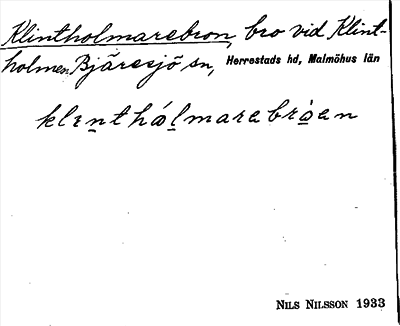 Klintholmarebron, bro vid Klint-
holmen, Bjäresjö sn, Herrestads hd, Malmöhus län
klɪnthálmarabrὰen
NILS NILSSON 1933